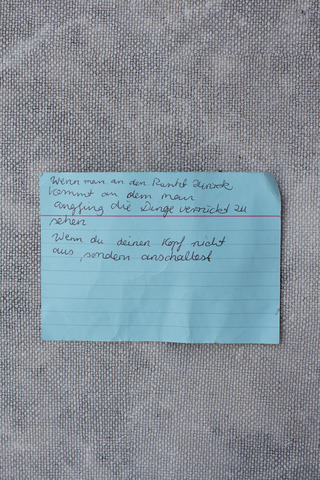 Wenn man an den Punkt zurück
kommt an dem man
angfung die Dinge verrückt zu
sehen
Wenn du deinen Kopf nicht
aus, sondern anschaltest